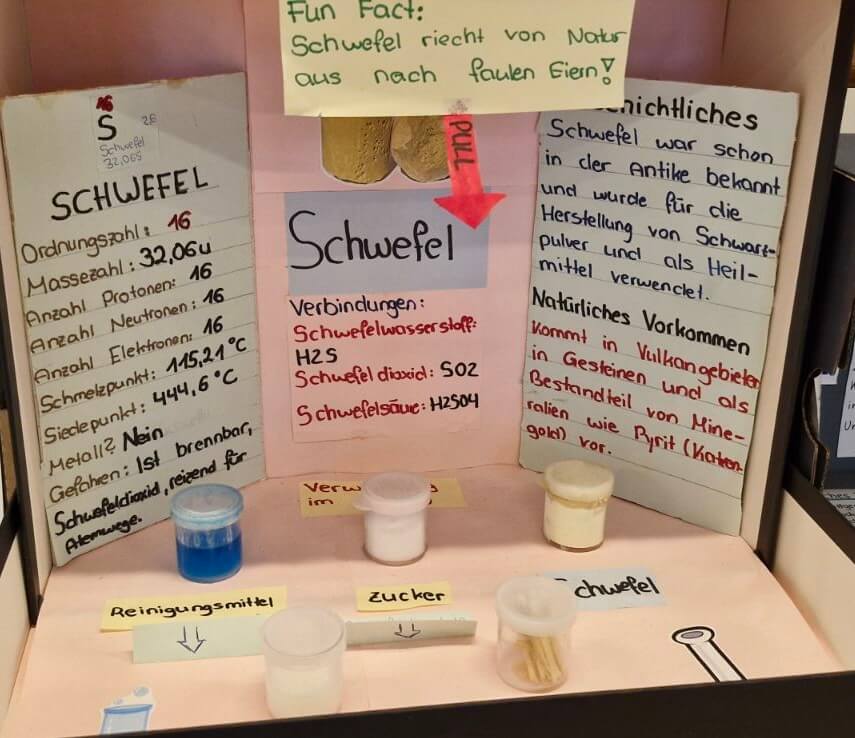 Fun Fact:
Schwefel riecht von Natur
aus nach faulen Eiern!
PULL
16
S
Schwefel
32,065
SCHWEFEL
Ordnungszahl: 16
Massezahl: 32,06u
Anzahl Protonen: 16
Anzahl Neutronen: 16
Anzahl Elektronen: 16
Schmelzpunkt: 115,21°C
Siedepunkt: 444,6°C
Metall? Nein
Gefahren: Ist brennbar,
Schwefeldioxid, reizend für
Atemwege.
Schwefel
Verbindungen:
Schwefelwasserstoff:
H2S
Schwefeldioxid: SO2
Schwefelsäure: H2SO4
chichtliches
Schwefel war schon
in der Antike bekannt
und wurde für die
Herstellung von Schwarz-
pulver und als Heil-
mittel verwendet.
Natürliches Vorkommen
Kommt in Vulkangebieten
in Gesteinen und als
Bestandteil von Mine-
ralien wie Pyrit (Katzen-
gold) vor.
im
Reinigungsmittel
Zucker
chwefel